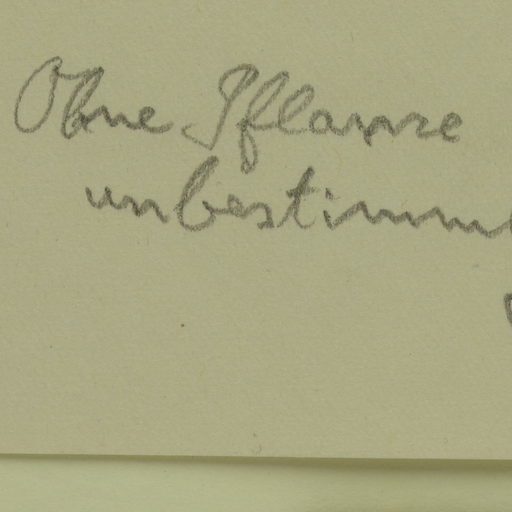 Ohne Pflanze
unbestimmb